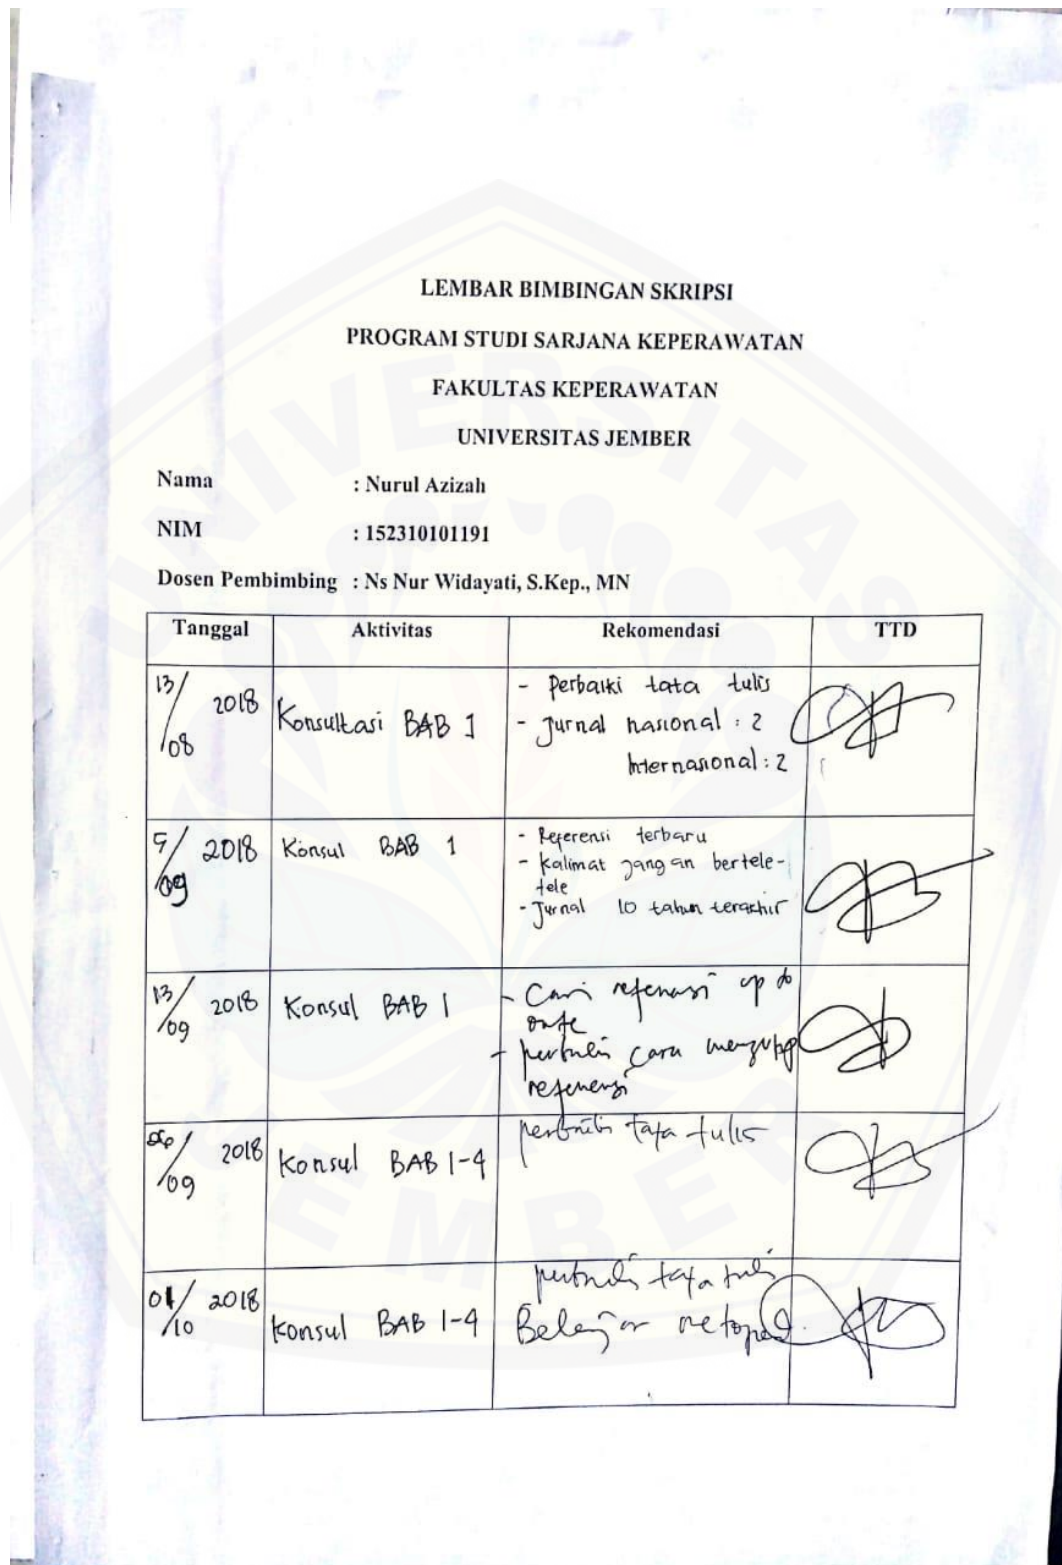 LEMBAR BIMBINGAN SKRIPSI
PROGRAM STUDI SARJANA KEPERAWATAN
FAKULTAS KEPERAWATAN
UNIVERSITAS JEMBER
Nama : Nurul Azizah
NIM : 152310101191
Dosen Pembimbing : Ns Nur Widayati, S.Kep., MN
Tanggal Aktivitas Rekomendasi TTD
13/08 2018 Konsultasi BAB 1
- Perbaiki tata tulis
- Jurnal nasional : 2
Internasional : 2
5/09 2018 Konsul BAB 1
- Referensi terbaru
- Kalimat jangan bertele-
tele
- Jurnal 10 tahun terakhir
13/09 2018 Konsul BAB 1
- Cari referensi up to
date
- perbaiki cara
referensi
/09 2018 Konsul BAB 1-4
perbaiki tata tulis
01/10 2018 Konsul BAB 1-4
perbaiki tata tulis
Belajar
UNIVERSITAS JEMBER